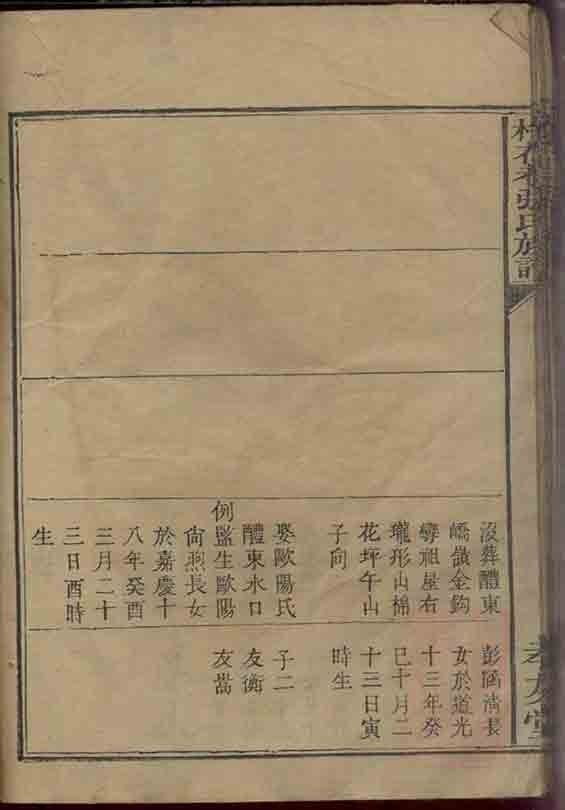 張氏族譜
孝友堂
沒葬醴東
嶠嶺金鈎
孿祖屋右
瓏形山棉
花坪午山
子向
娶歐陽氏
醴東水口
例監生歐陽
尙燕長女
於嘉慶十
八年癸酉
三月二十
三日酉時
生
彭閣清長
女於道光
十三年癸
巳十月二
十三日寅
時生
子二
友衡
友嵩